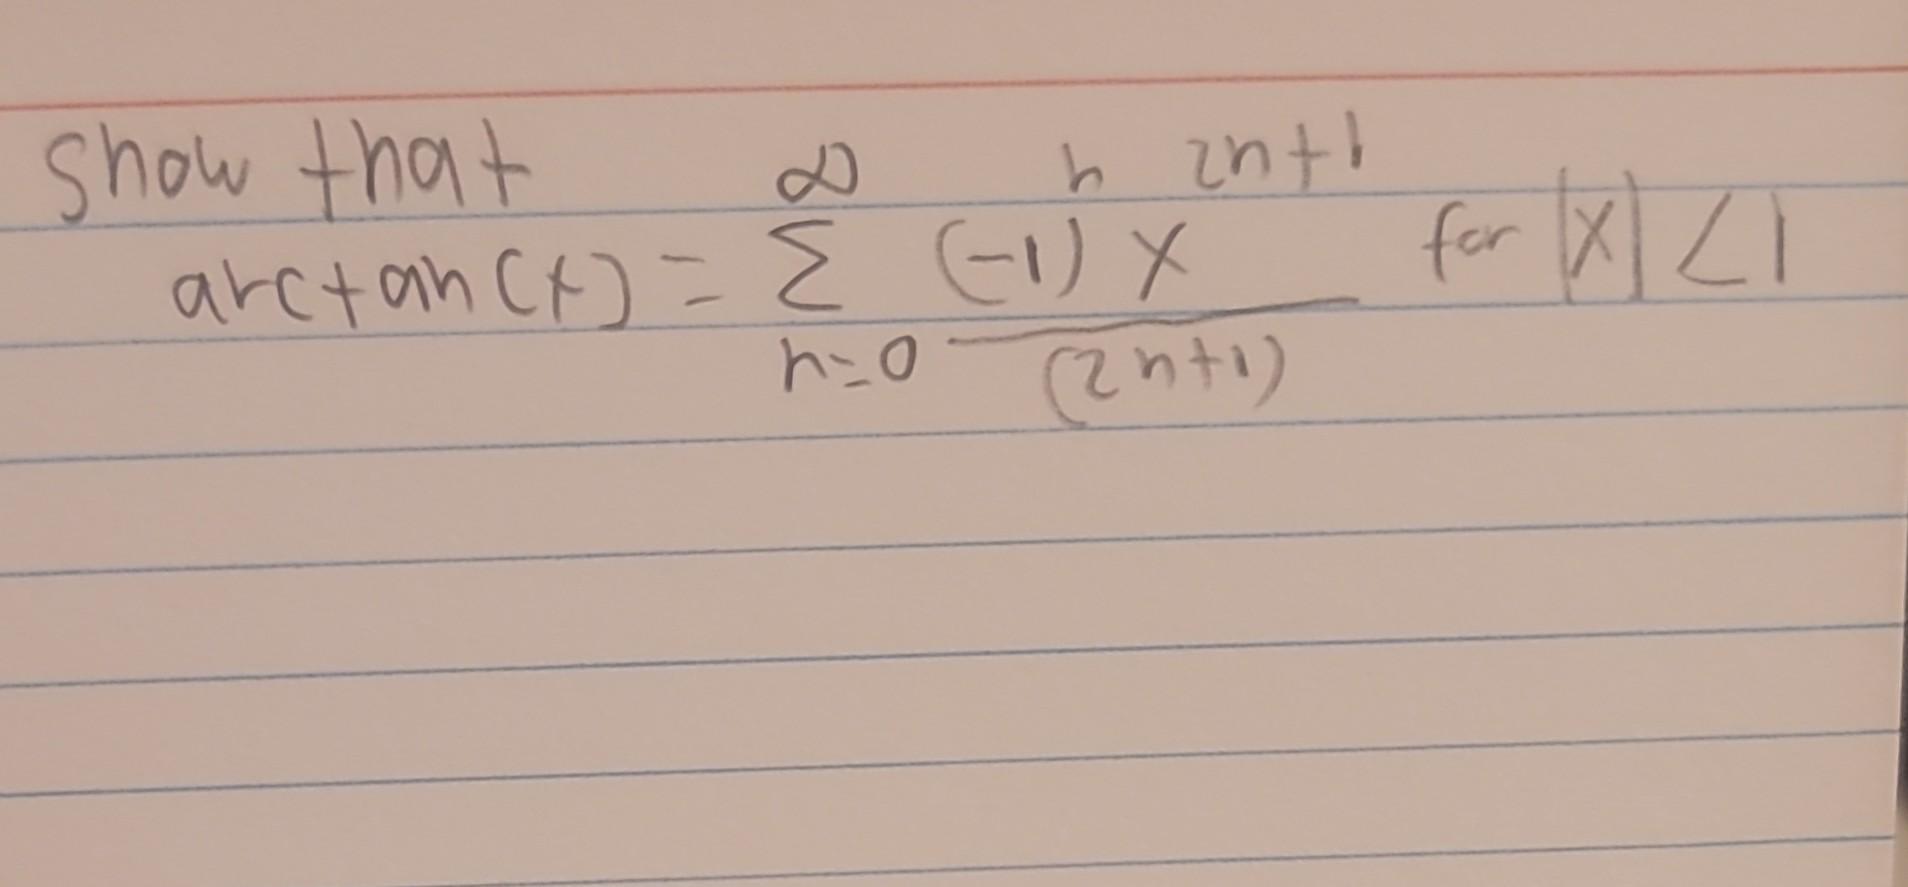 show that
arctan(x) = ∞ Σ n=0 (-1)^n x^2n+1 / (2n+1) for |x| < 1